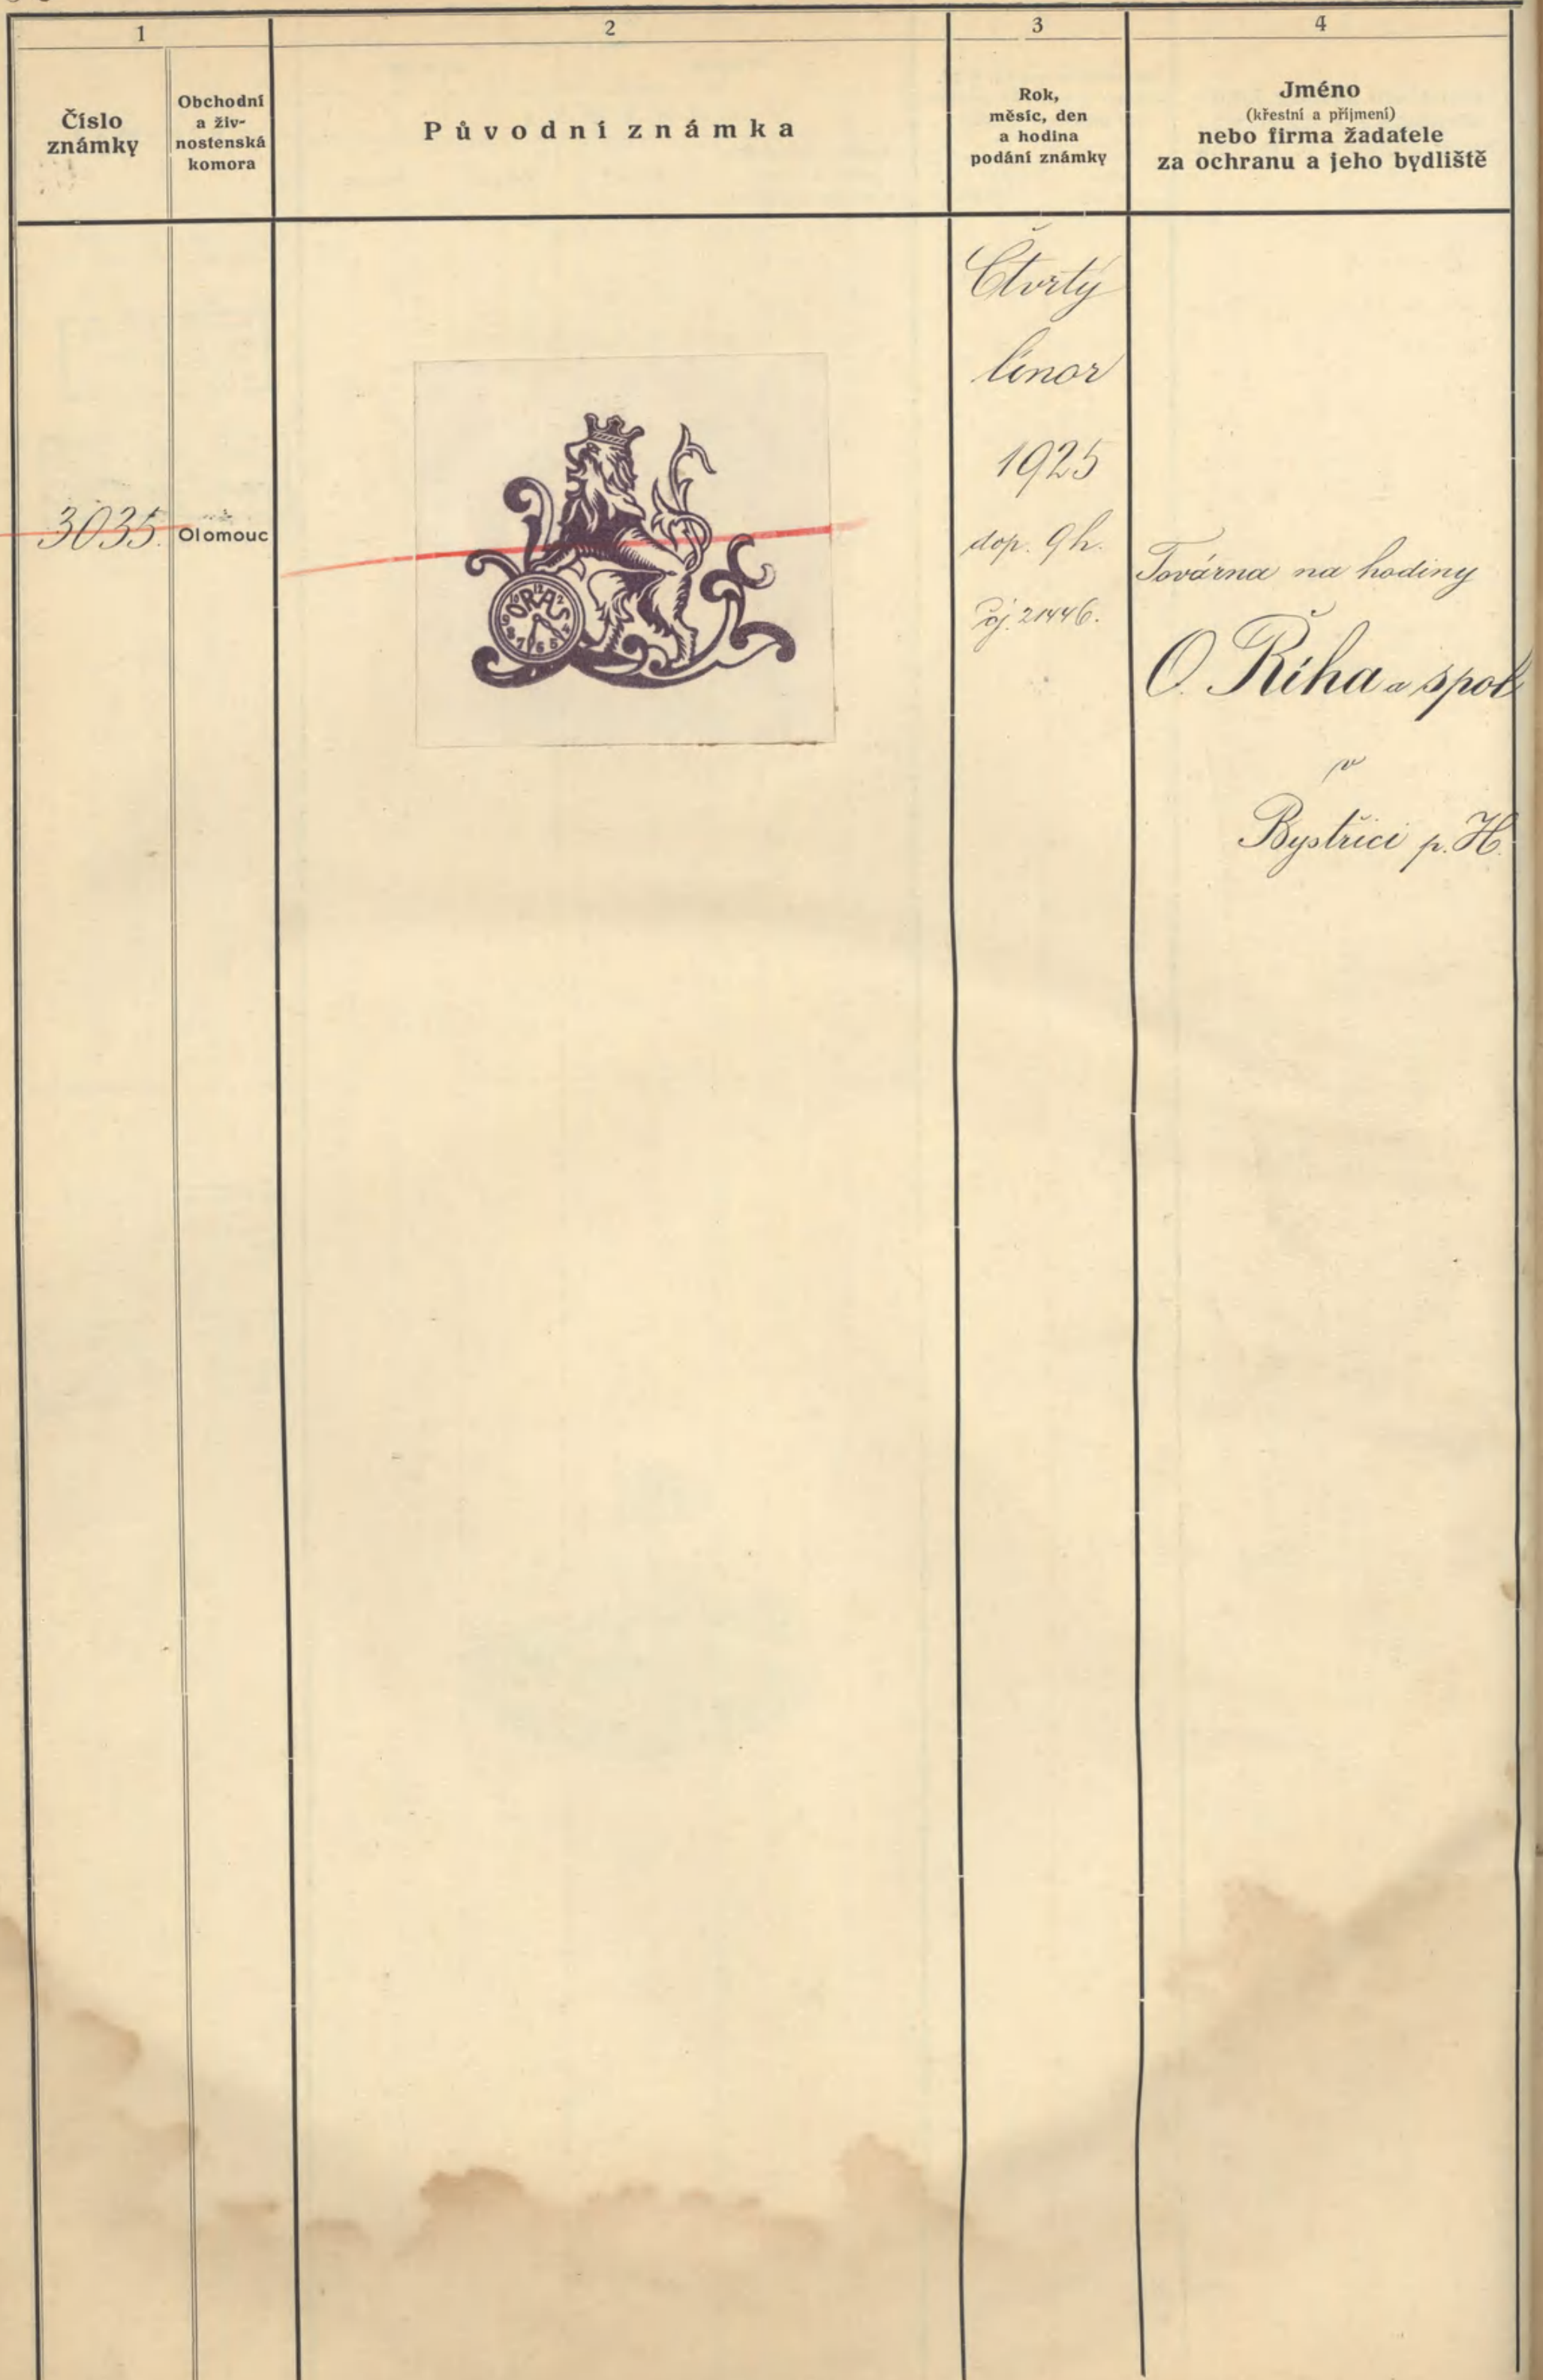 1
2
3
4
Číslo
známky
Obchodní
a živ-
nostenská
komora
Původní známka
Rok,
měsíc, den
a hodina
podání známky
Jméno
(křestní a příjmení)
nebo firma žadatele
za ochranu a jeho bydliště
3035.
Olomouc
ORAS
Čtvrtý
únor
1925
dop. 9h.
21446.
Továrna na hodiny
O. Říha a spol
v
Bystřici p. H.